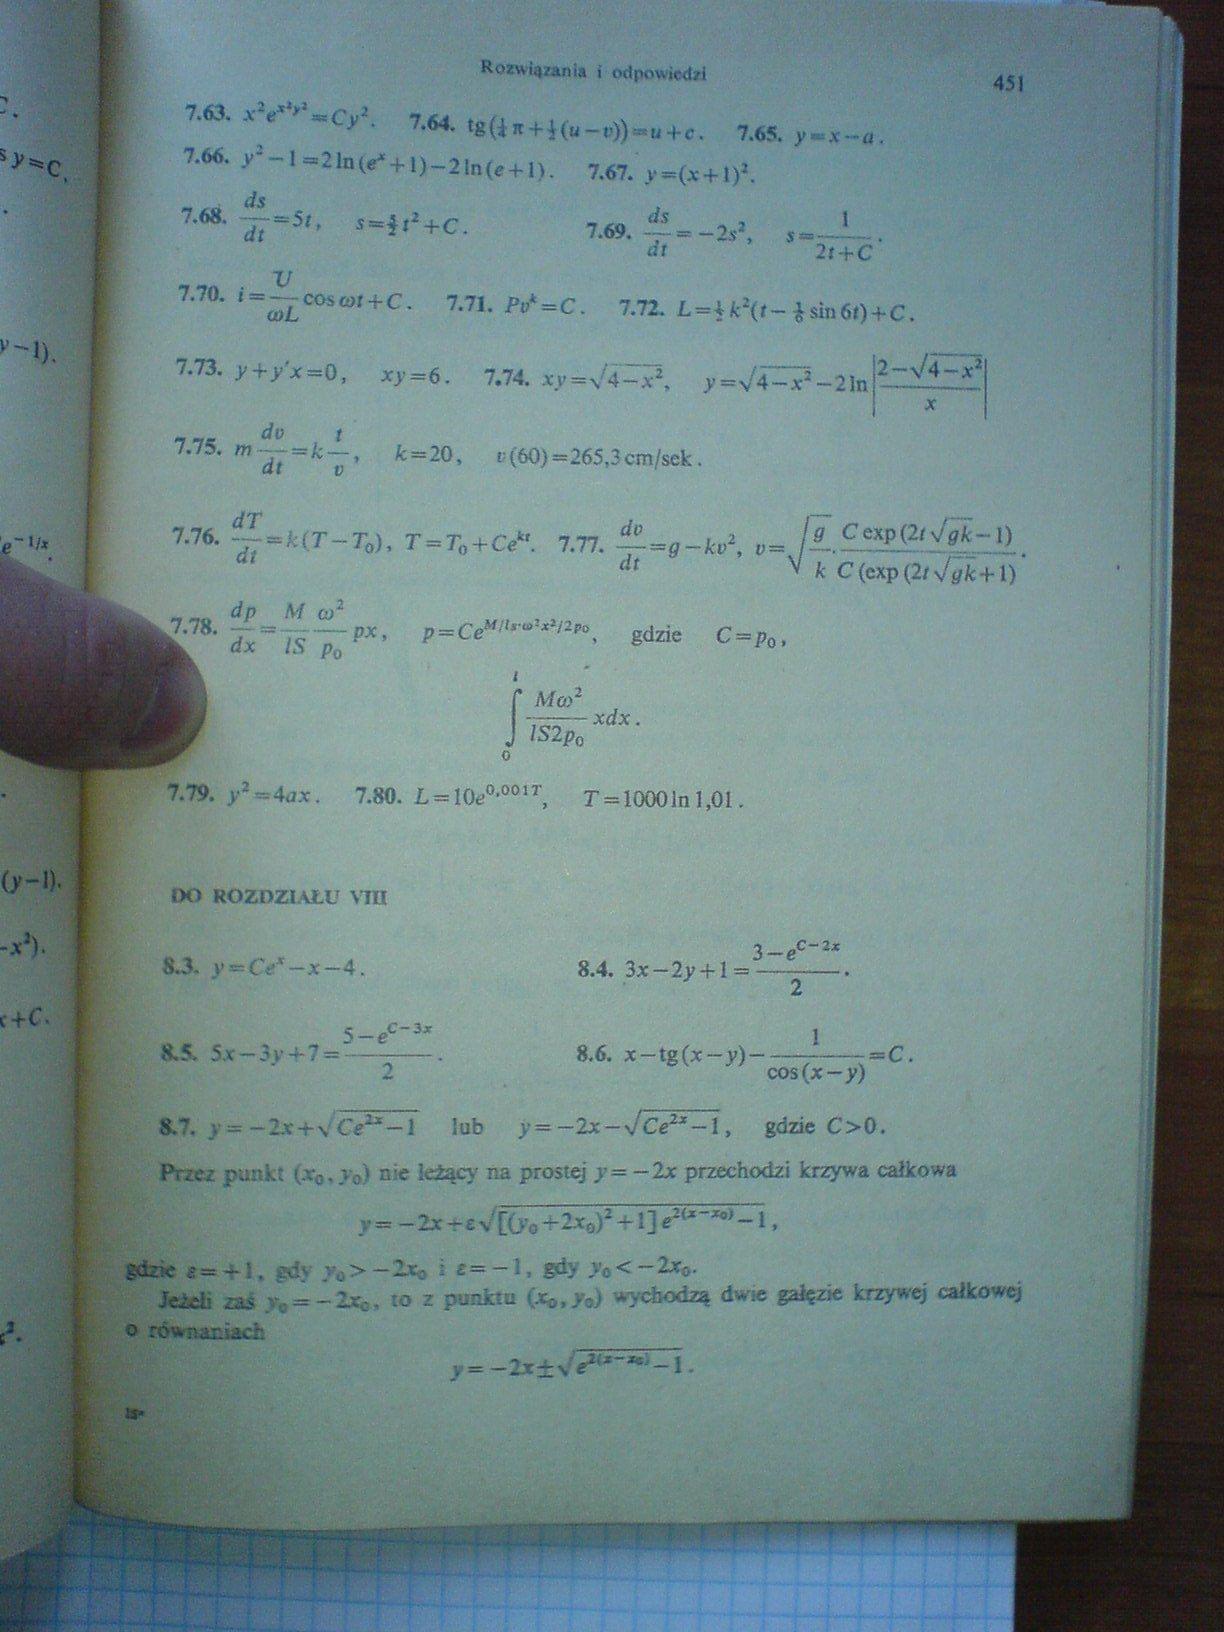 Rozwiązania i odpowiedzi 451
7.63. x²e^{x²y²}=Cy². 7.64. tg(¼π+½(u−v))=u+c. 7.65. y=x−a.
7.66. y²−1=2ln(eˣ+1)−2ln(e+1). 7.67. y=(x+1)².
7.68. ds/dt=5t, s=5/2 t²+C. 7.69. ds/dt=−2s², s=1/(2t+C).
7.70. i=U/ωL cos ωt+C. 7.71. Pvᵏ=C. 7.72. L=½k²(t−⅙ sin 6t)+C.
7.73. y+y'x=0, xy=6. 7.74. xy=√(4−x²), y=√(4−x²)−2ln|(2−√(4−x²))/x|
7.75. m dv/dt=k t/v, k=20, v(60)=265,3 cm/sek.
7.76. dT/dt=k(T−T₀), T=T₀+Ce^{kt}. 7.77. dv/dt=g−kv², v=√(g/k)·C exp(2t√gk−1)/C(exp(2t√gk+1).
7.78. dp/dx=M/lS ω²/p₀ px, p=Ce^{M/ls·ω²x²/2p₀}, gdzie C=p₀,
∫₀ˡ Mω²/lS2p₀ xdx.
7.79. y²=4ax. 7.80. L=10e^{0,001T}, T=1000 ln 1,01.
DO ROZDZIAŁU VIII
8.3. y=Ceˣ−x−4. 8.4. 3x−2y+1=(3−e^{C−2x})/2.
8.5. 5x−3y+7=(5−e^{C−3x})/2. 8.6. x−tg(x−y)−1/cos(x−y)=C.
8.7. y=−2x+√(Ce^{2x}−1) lub y=−2x−√(Ce^{2x}−1), gdzie C>0.
Przez punkt (x₀, y₀) nie leżący na prostej y=−2x przechodzi krzywa całkowa
y=−2x+ε√([(y₀+2x₀)²+1]e^{2(x−x₀)}−1),
gdzie ε=+1, gdy y₀>−2x₀ i ε=−1, gdy y₀<−2x₀.
Jeżeli zaś y₀=−2x₀, to z punktu (x₀, y₀) wychodzą dwie gałęzie krzywej całkowej
o równaniach
y=−2x±√(e^{2(x−x₀)}−1).